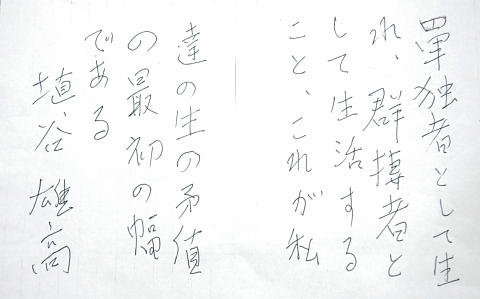 單独者として生
れ、群摶者と
して生活する
こと、これが私
達の生の矛値
の最初の幅
である
埴谷雄高